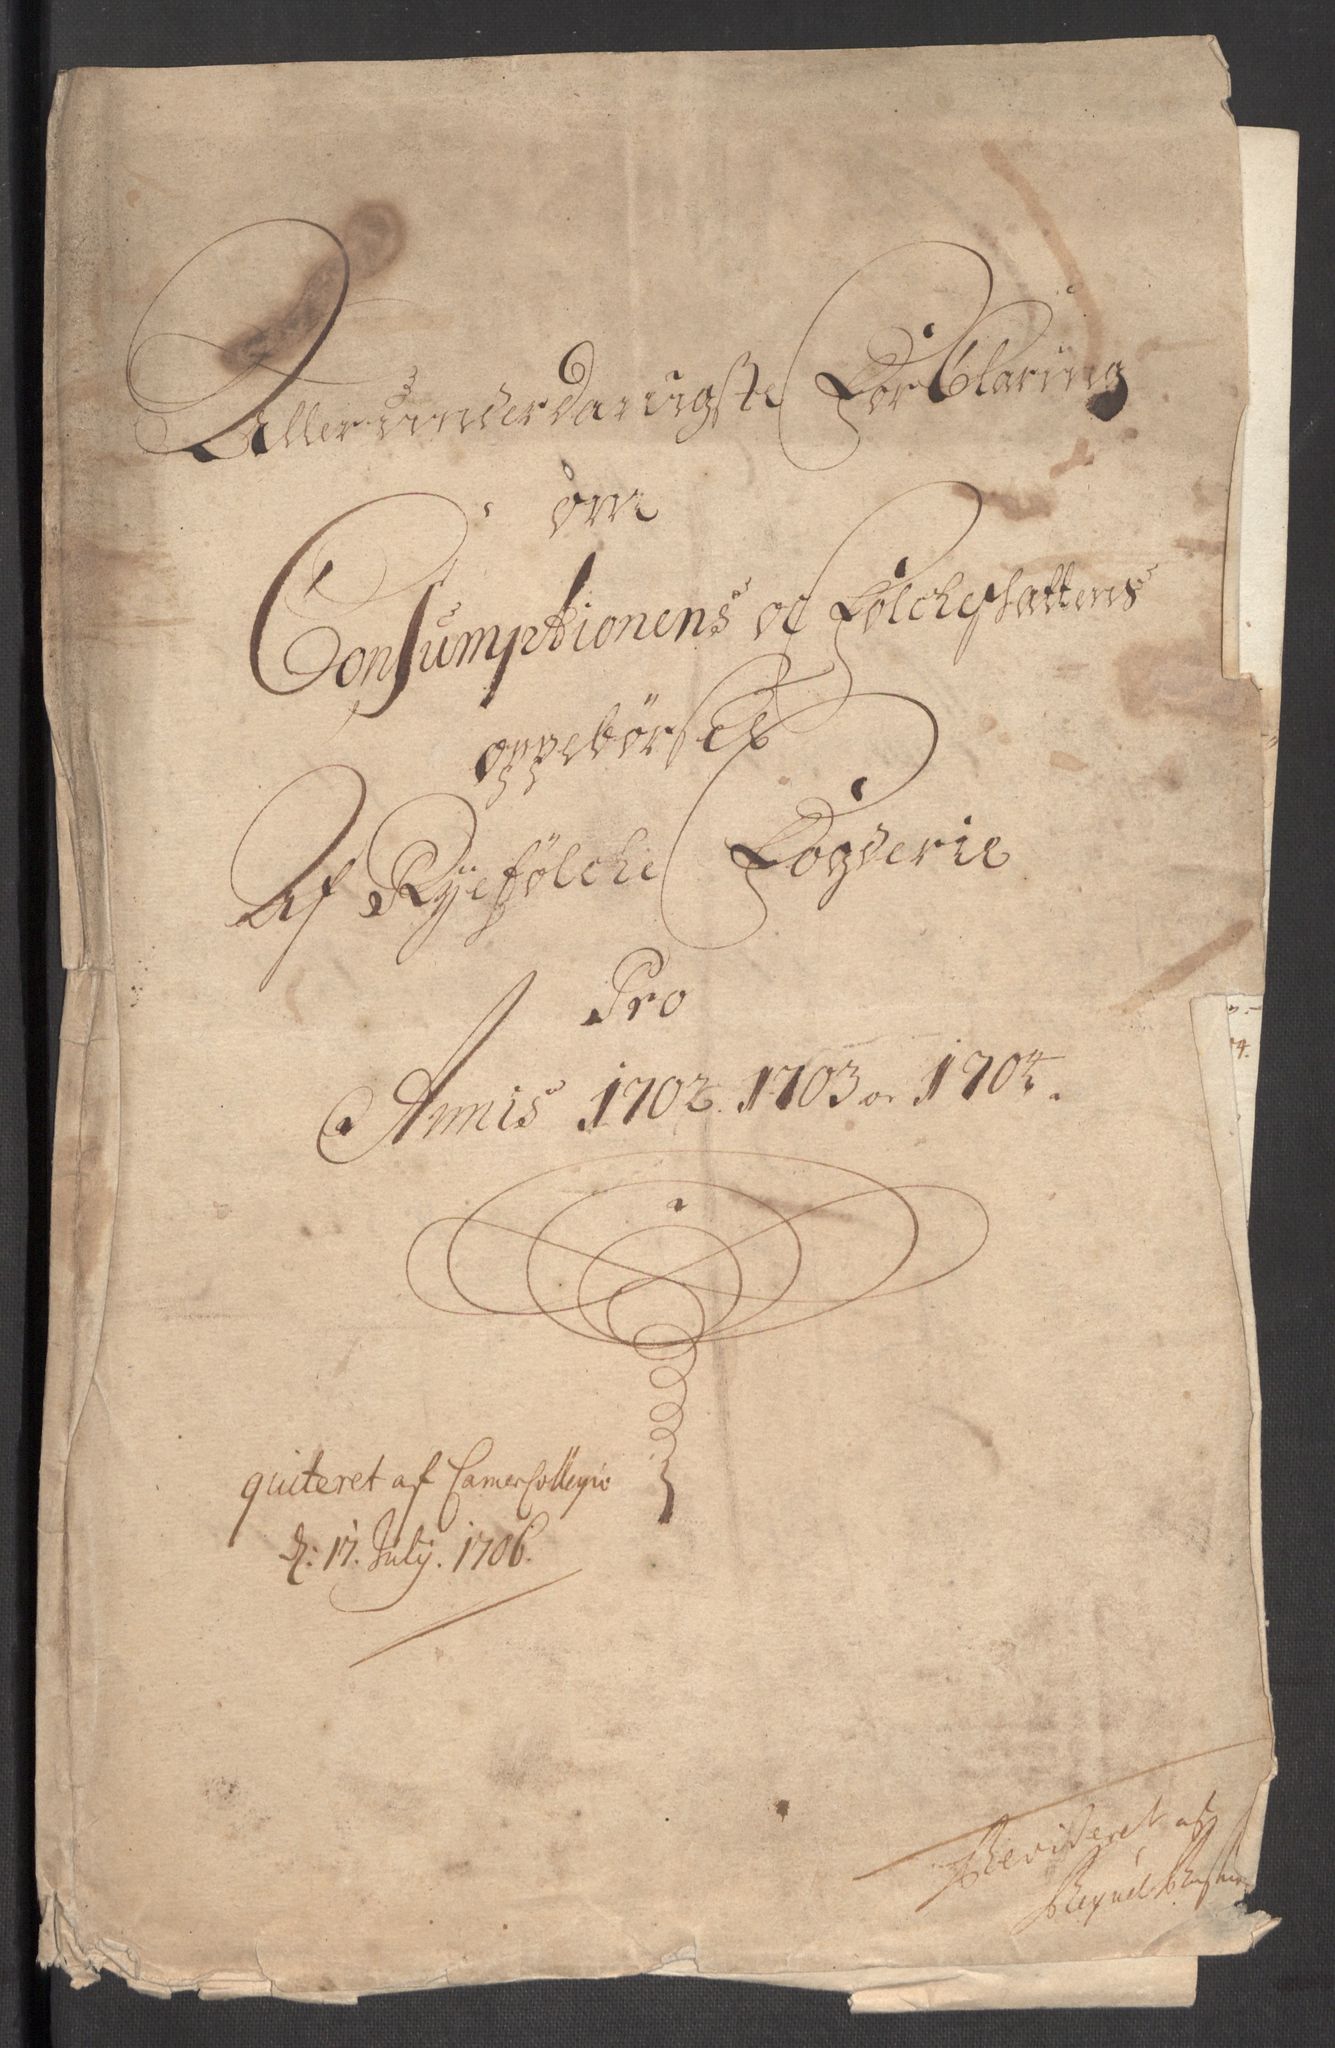 Allerunderdanigste Forklaring
om
Consumptionens oc Folcheskattens
oppebørsel
Af Ryefølche Fogderie
Pro
Annis 1702. 1703 oc 1704.
quiteret af CamerCollegio
d: 17. July. 1706.
Revideret af